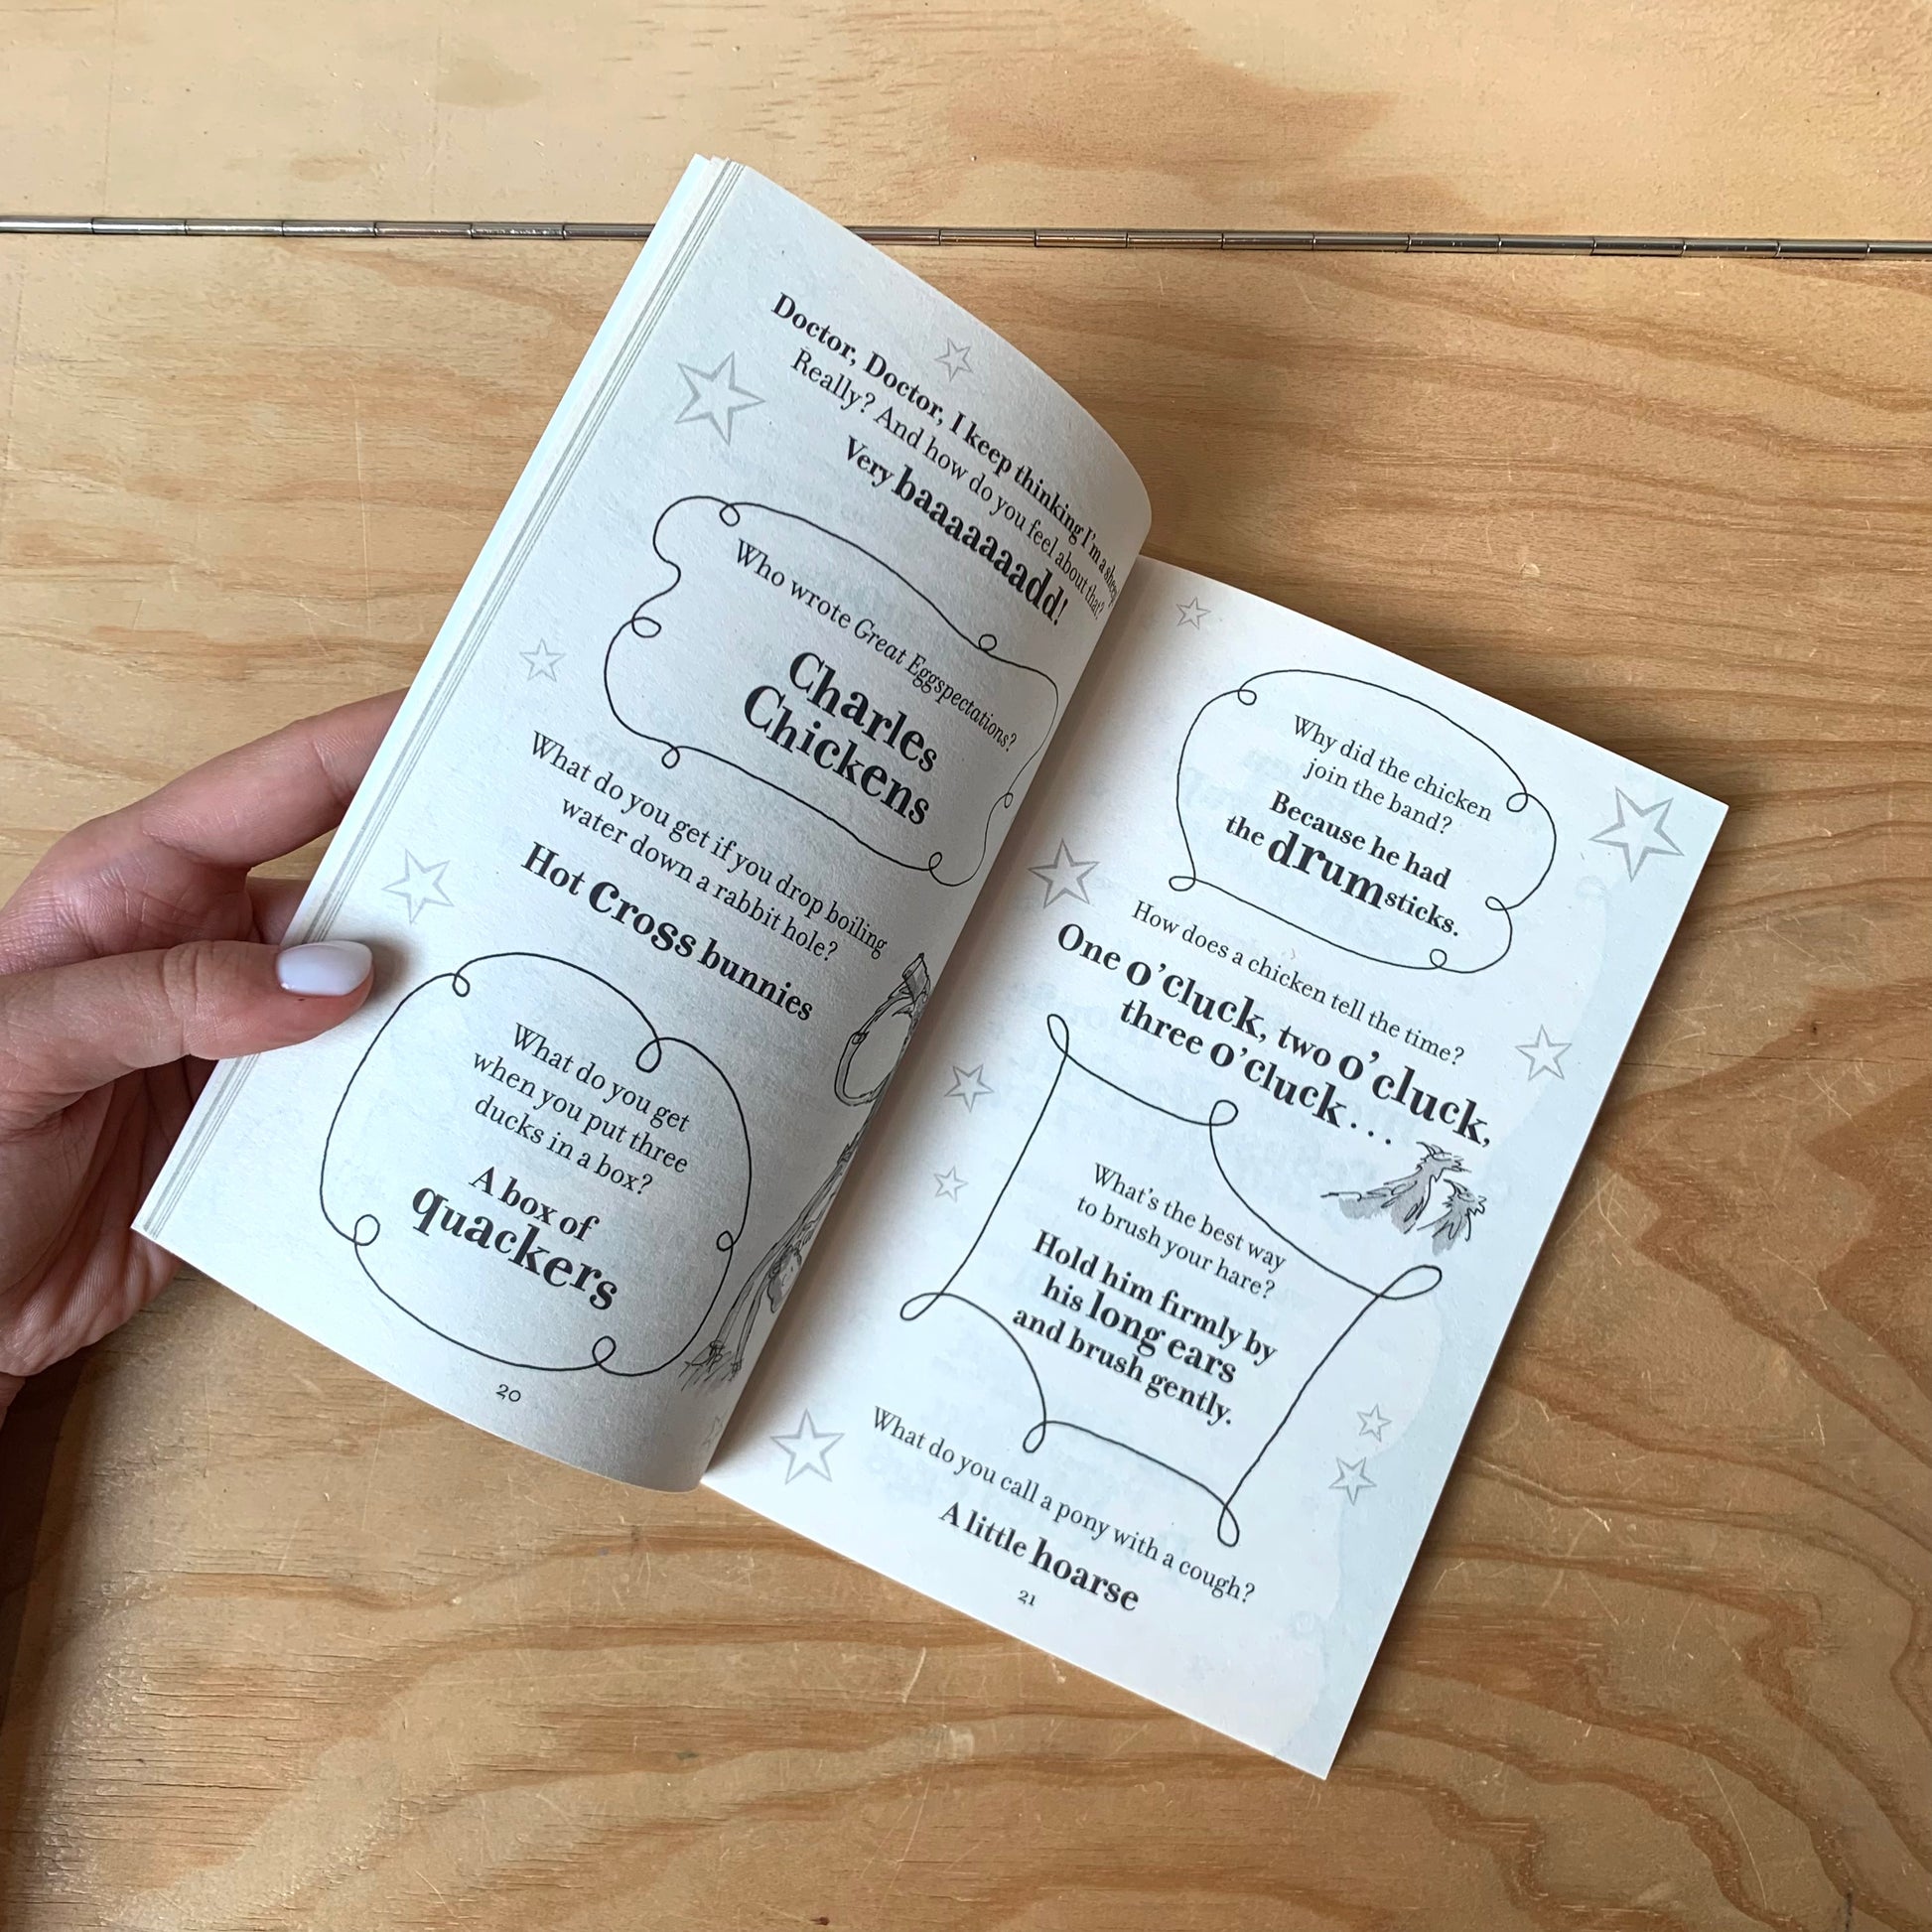 Doctor, Doctor, I keep thinking I'm a sheep.
Really? And how do you feel about that?
Very baaaaaaaadd!
Who wrote Great Eggspectations?
Charles
Chickens
What do you get if you drop boiling
water down a rabbit hole?
Hot cross bunnies
What do you get
when you put three
ducks in a box?
A box of
quackers
20
Why did the chicken
join the band?
Because he had
the drumsticks.
How does a chicken tell the time?
One o'cluck, two o'cluck,
three o'cluck...
What's the best way
to brush your hare?
Hold him firmly by
his long ears
and brush gently.
What do you call a pony with a cough?
A little hoarse
21